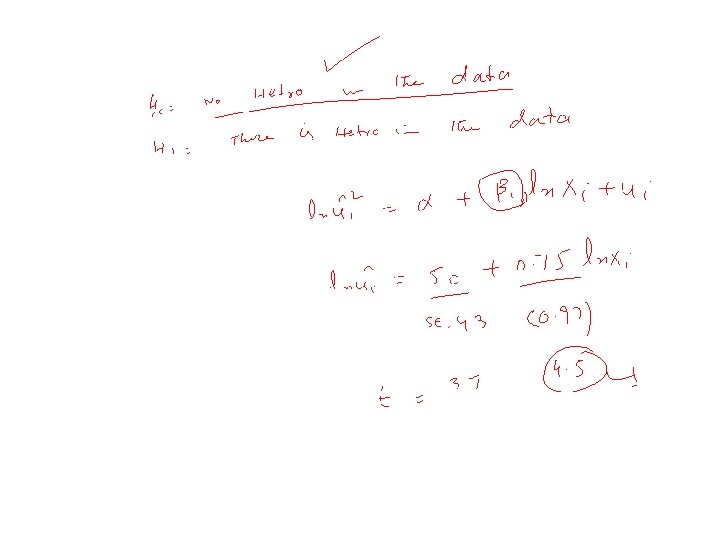 H₀: No Hetro in the data
H₁: There is Hetro in the data
ln û²ᵢ = α + β₁ ln Xᵢ + uᵢ
ln ûᵢ = 50 + 0.75 ln xᵢ
se.43 (0.97)
t = 37 4.5